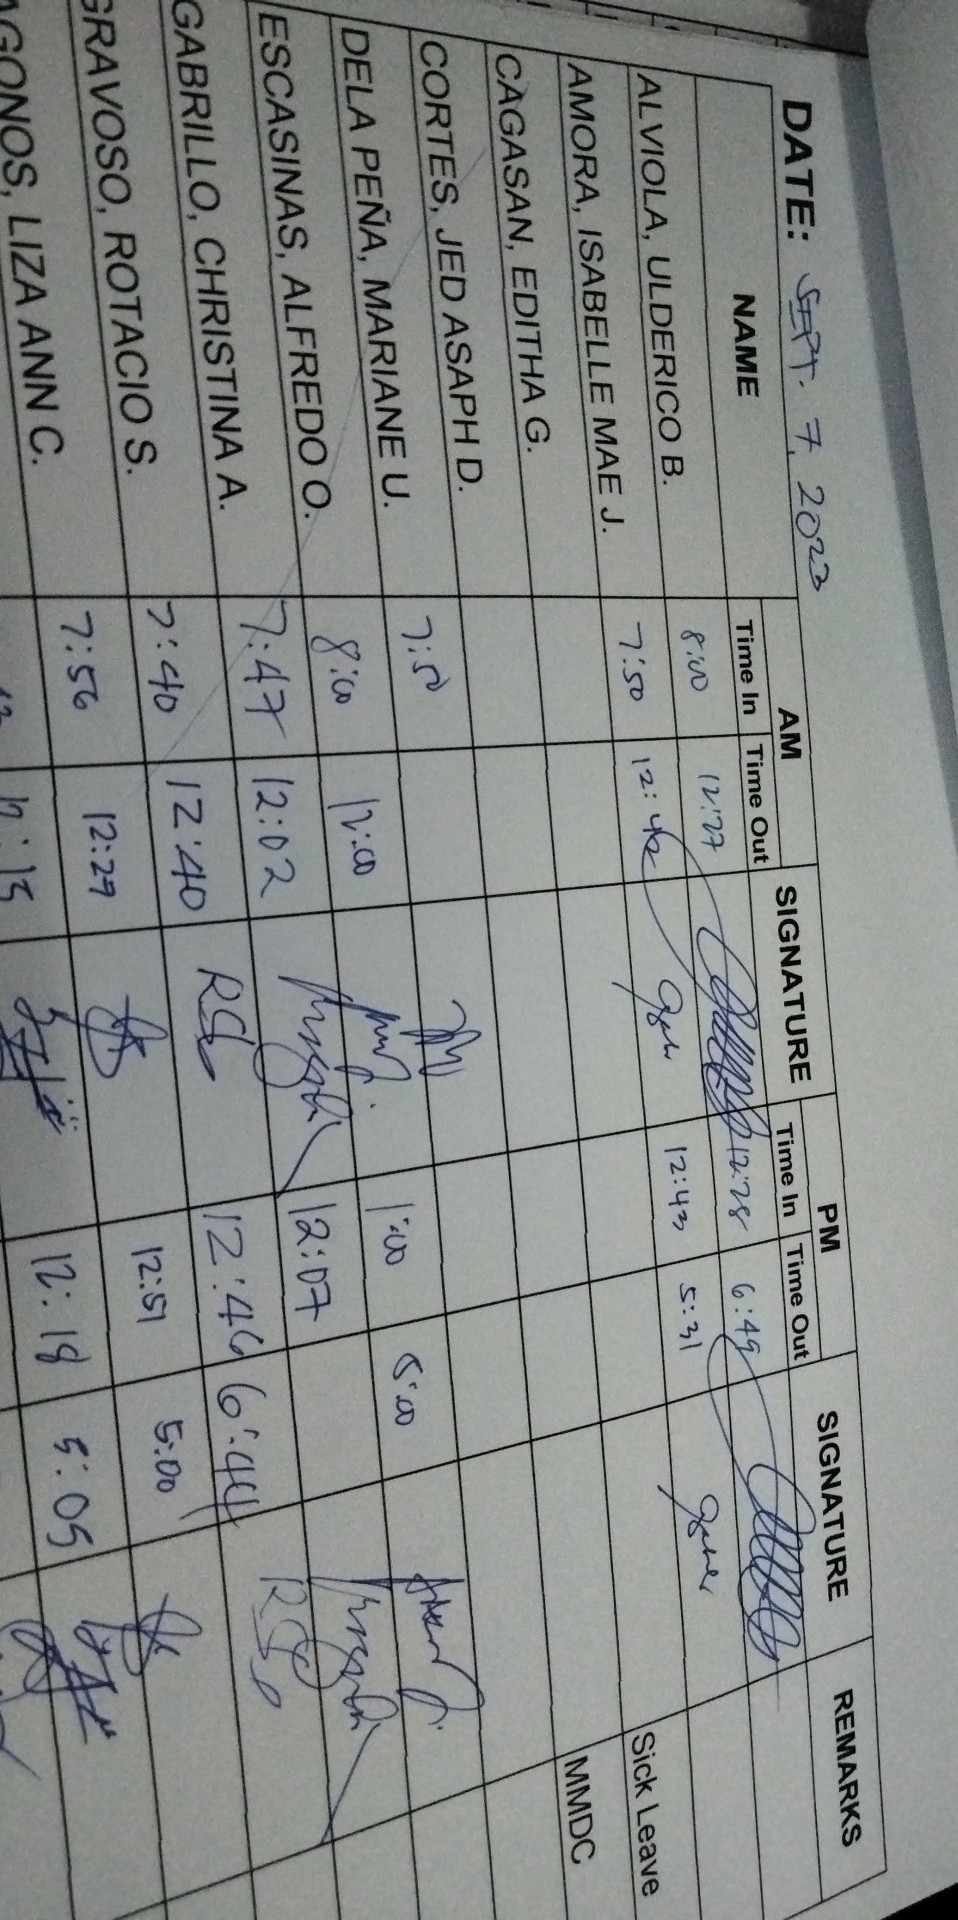 DATE: SEPT. 7, 2023
NAME AM SIGNATURE PM SIGNATURE REMARKS
Time In Time Out Time In Time Out
ALVIOLA, ULDERICO B. 8:00 12:27 12:28 6:49
AMORA, ISABELLE MAE J. 7:50 12:42 12:43 5:31
CAGASAN, EDITHA G. Sick Leave
CORTES, JED ASAPH D. MMDC
DELA PEÑA, MARIANE U. 7:50
ESCASINAS, ALFREDO O. 8:00 12:00 1:00 5:00
GABRILLO, CHRISTINA A. 7:47 12:02 12:07
GRAVOSO, ROTACIO S. 7:40 12:40 12:46 6:44
AGONOS, LIZA ANN C. 7:56 12:29 12:51 5:00
12:15 12:18 5:05